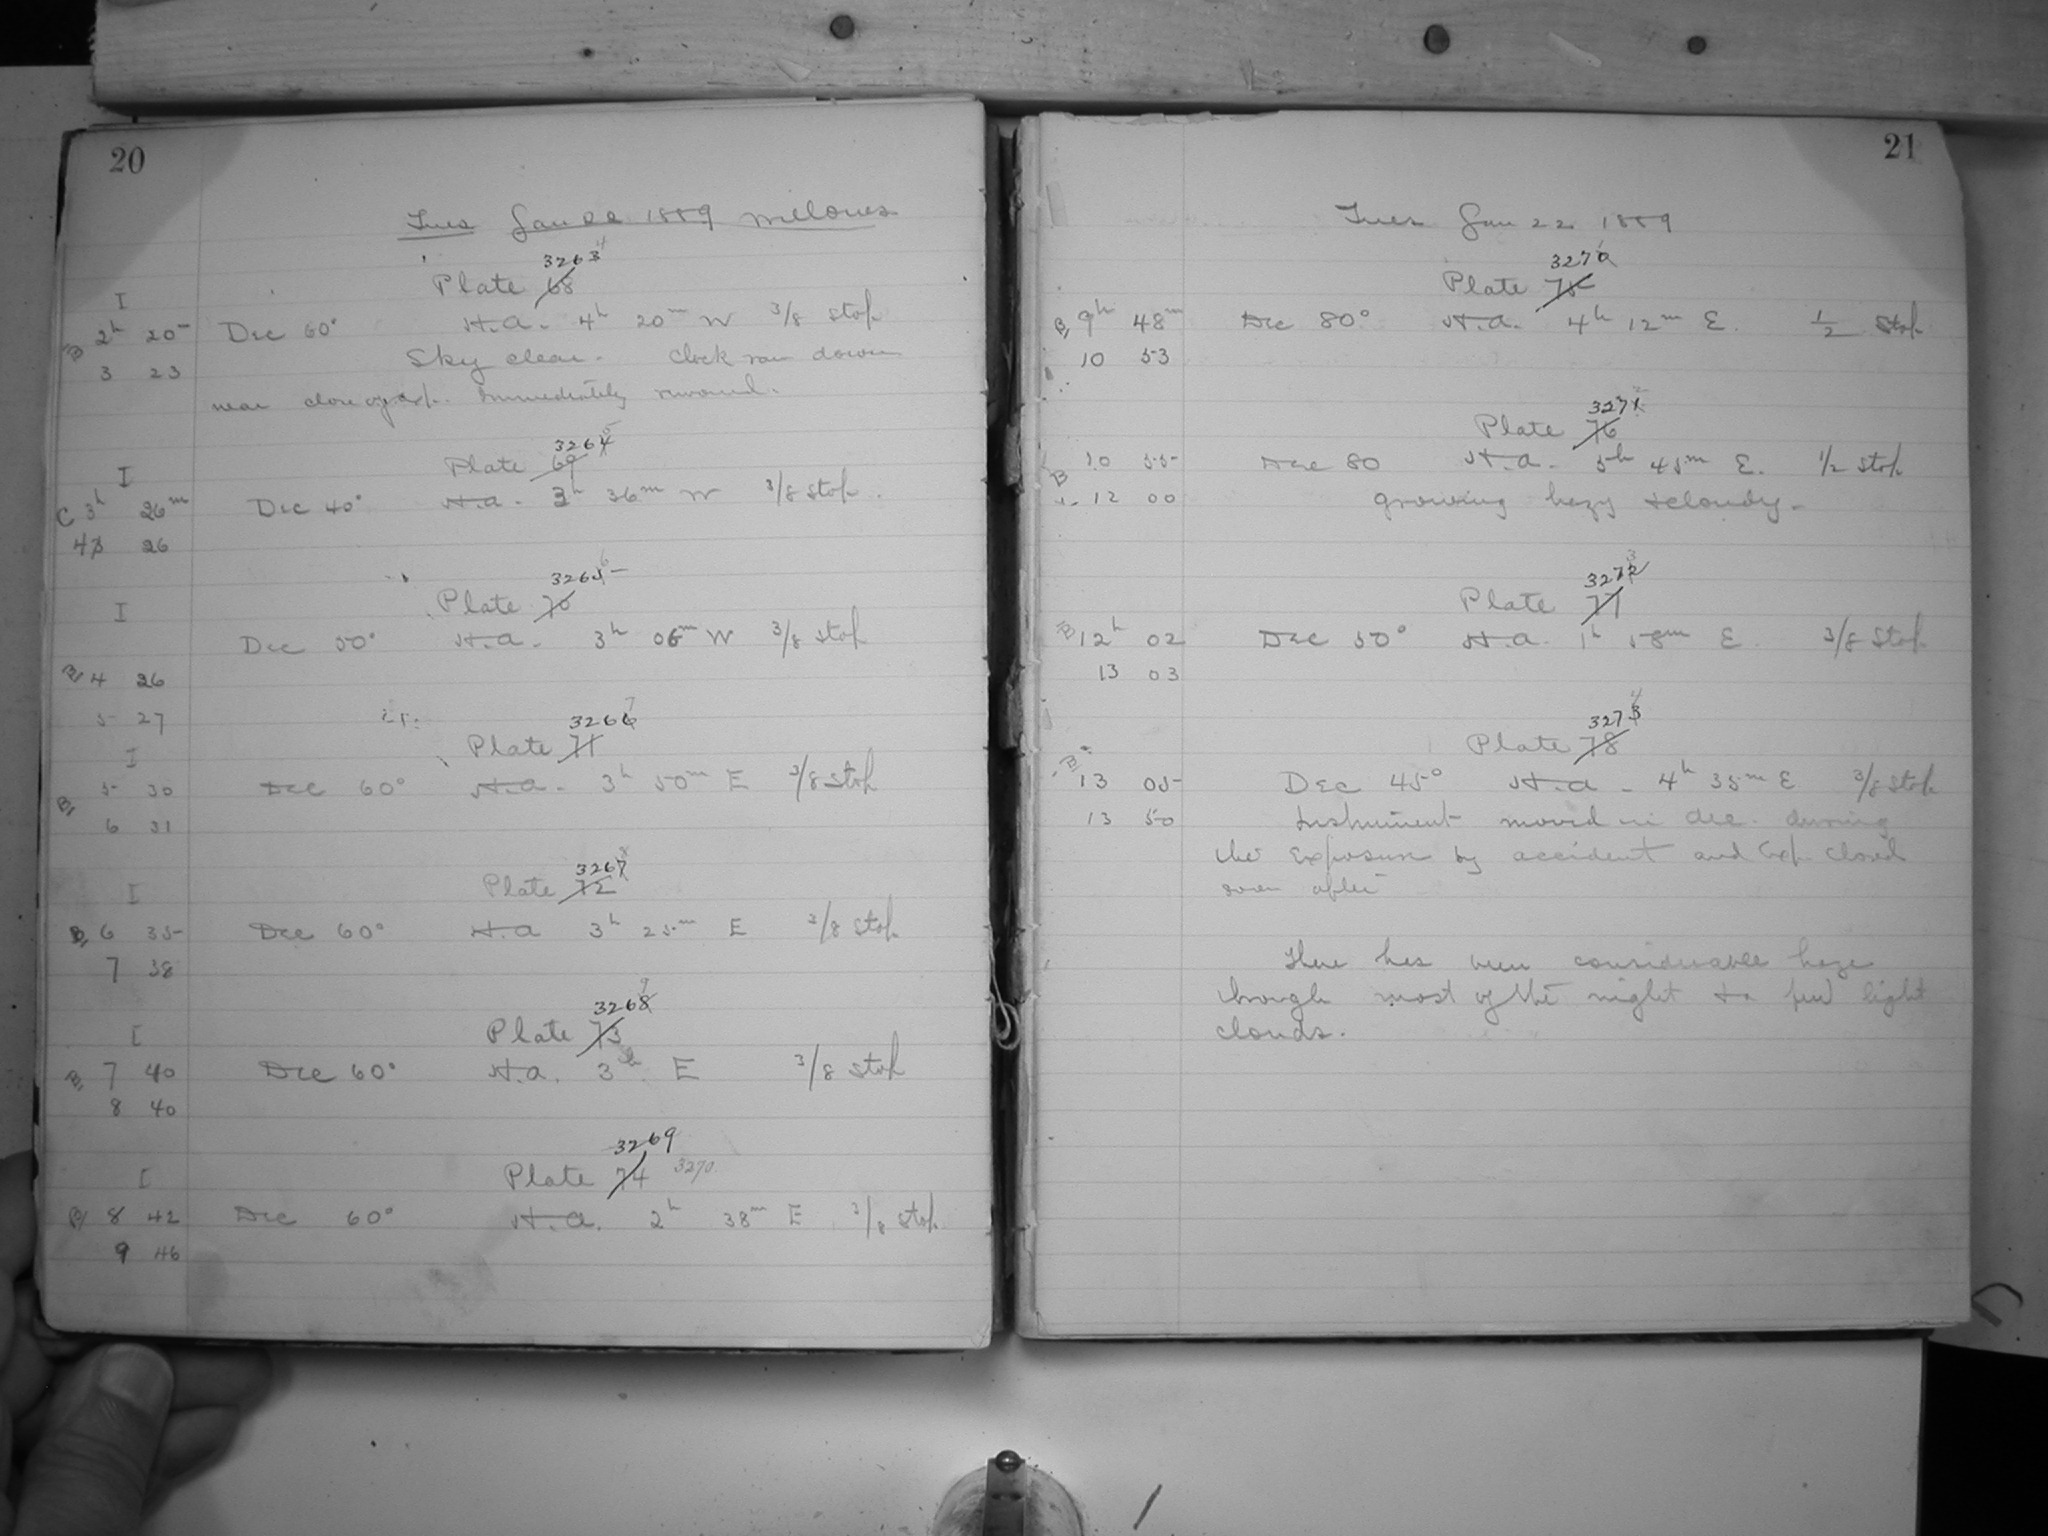 20
Tues Jan 22 1889
3263 4
Plate 68
I
B 2h 20m Dec 60° H.A. 4h 20m W 3/8 stop
Sky clear. Clock ran down
3 23
near close of exp. Immediately rewound.
3264 5
Plate 69
I
C 3h 26m Dec 40° H.A. 3h 36m W 3/8 stop.
4 26
3265 6
Plate 70
I
Dec 50° H.A. 3h 06m W 3/8 stop
B 4 26
5 27
3266 7
Plate 71
I
5 30 Dec 60° H.A. 3h 50m E 3/8 stop
B
6 31
3267 8
Plate 72
I
B 6 35 Dec 60° H.A 3h 25m E 3/8 stop
7 38
3268 9
Plate 73
I
B 7 40 Dec 60° H.A. 3h E 3/8 stop
8 40
3269
Plate 74 3270
I
B 8 42 Dec 60° H.A. 2h 38m E 3/8 stop
9 46
21
Tues Jan 22 1889
3270 1
Plate 75
B 9h 48m Dec 80° H.A. 4h 12m E. 1/2 Stop
10 53
3271 2
Plate 76
B 10 55 Dec 80 H.A. 5h 45m E. 1/2 stop
12 00 growing hazy & cloudy.
3272 3
Plate 77
B 12h 02 Dec 50° H.A. 1h 58m E. 3/8 Stop
13 03
3273 4
Plate 78
B
13 05 Dec 45° H.A. 4h 35m E 3/8 stop
13 50 Instrument moved in dec. during
the exposure by accident and exp. closed
soon after
There has been considerable haze
through most of the night & a few light
clouds.